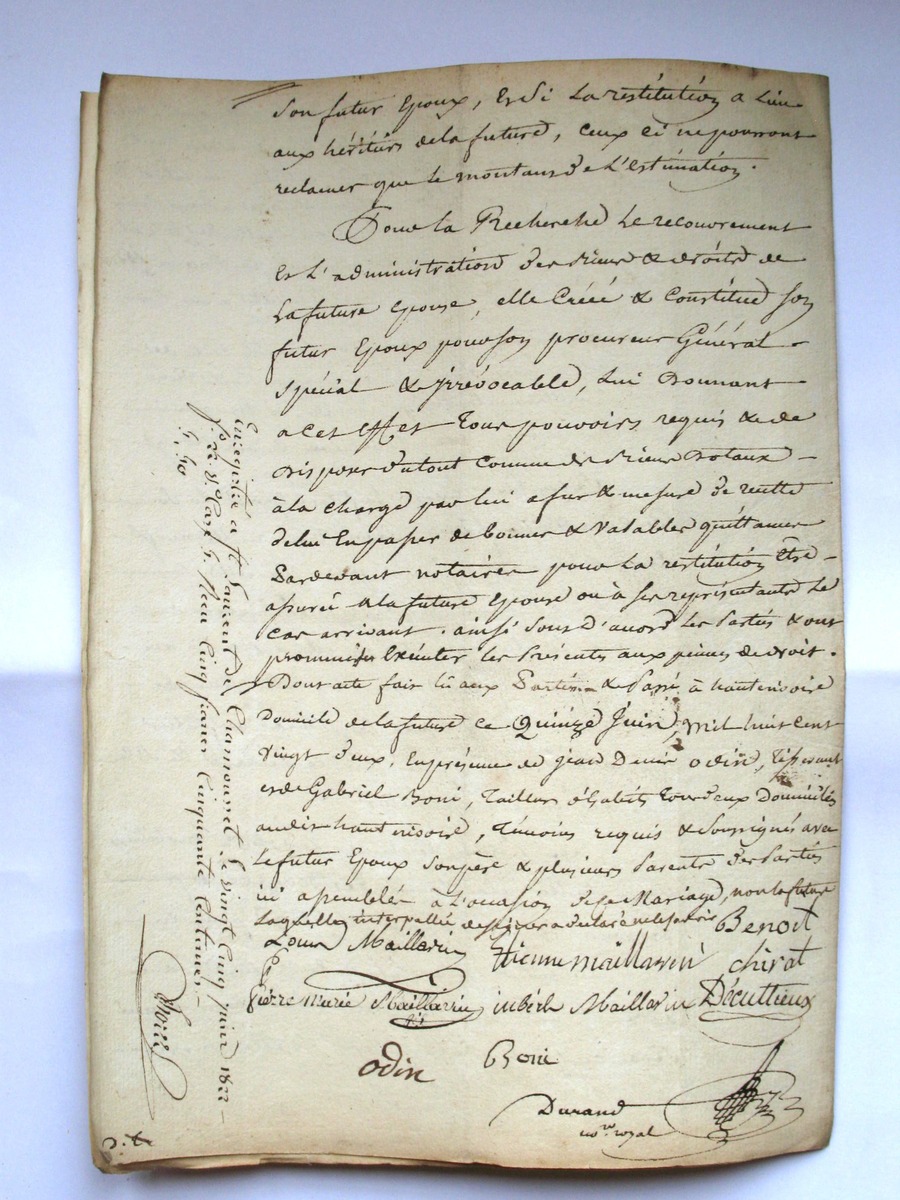 son futur Epoux, Et Si La restitution a Lieu
aux héritiers de la future, ceux ci ne pourront
reclamer que le montant de L'estimation.
Pour la Recherche Le recouvrement
Et L'administration des biens & droits de
La future Epouse, elle Créé & Constitue son
futur Epoux pour son procureur Général
spécial & irrévocable, Lui Donnant
a cet effet Tous pouvoirs requis & de
disposer du tout Comme de biens dotaux
à la charge par lui a fur & mesure de recette
de lui En passer de bonnes & Valables quittances
Pardevant notaires pour La restitution Être
assurée à la future Epouse ou à ses représentants Le
cas arrivant. ainsi sont d'acord Les Parties & ont
promis Exécuter les Présentes aux peines de droit.
Dont acte fait lû aux Parties & Passé à hauterivoire
Domicile de la future ce Quinze Juin, mil huit cent
vingt deux, En présence de jean Denis odin, tisserant
et de Gabriel Boni, Tailleur d'habits tous deux Domiciliés
audit hauterivoire, Témoins requis & Soussignés avec
Le futur Epoux son père & plusieurs Parents des Parties
ici assemblés à L'occasion de ce Mariage, non la future
Laquelle interpellée de signer a déclaré ne le savoir
Benoit
Louis Maillavin
Etienne maillavin
chirat
pierre marie Maillavin
imbert Maillavin
Décultieux
odin
Boni
Durand
no.re royal
Enregistré à St Laurent de Chamousset Le vingt cinq juin 1822
f.o
Reçu Cinq francs Cinquante Centimes